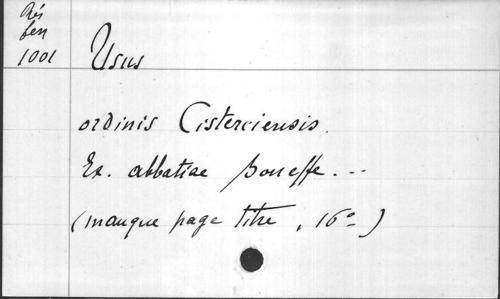 Rés
fen
1001
Usus
ordinis Cisterciensis.
Ex. abbatiae Boneffe. ...
(manque page titre, 16°)